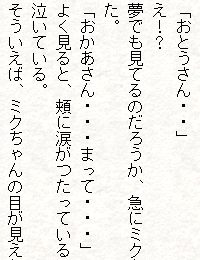 「おとうさん・・・」
え！？
夢でも見てるのだろうか、急にミク
た。
「おかあさん・・・まって・・・」
よく見ると、頬に涙がつたっている
泣いている。
そういえば、ミクちゃんの目が見え